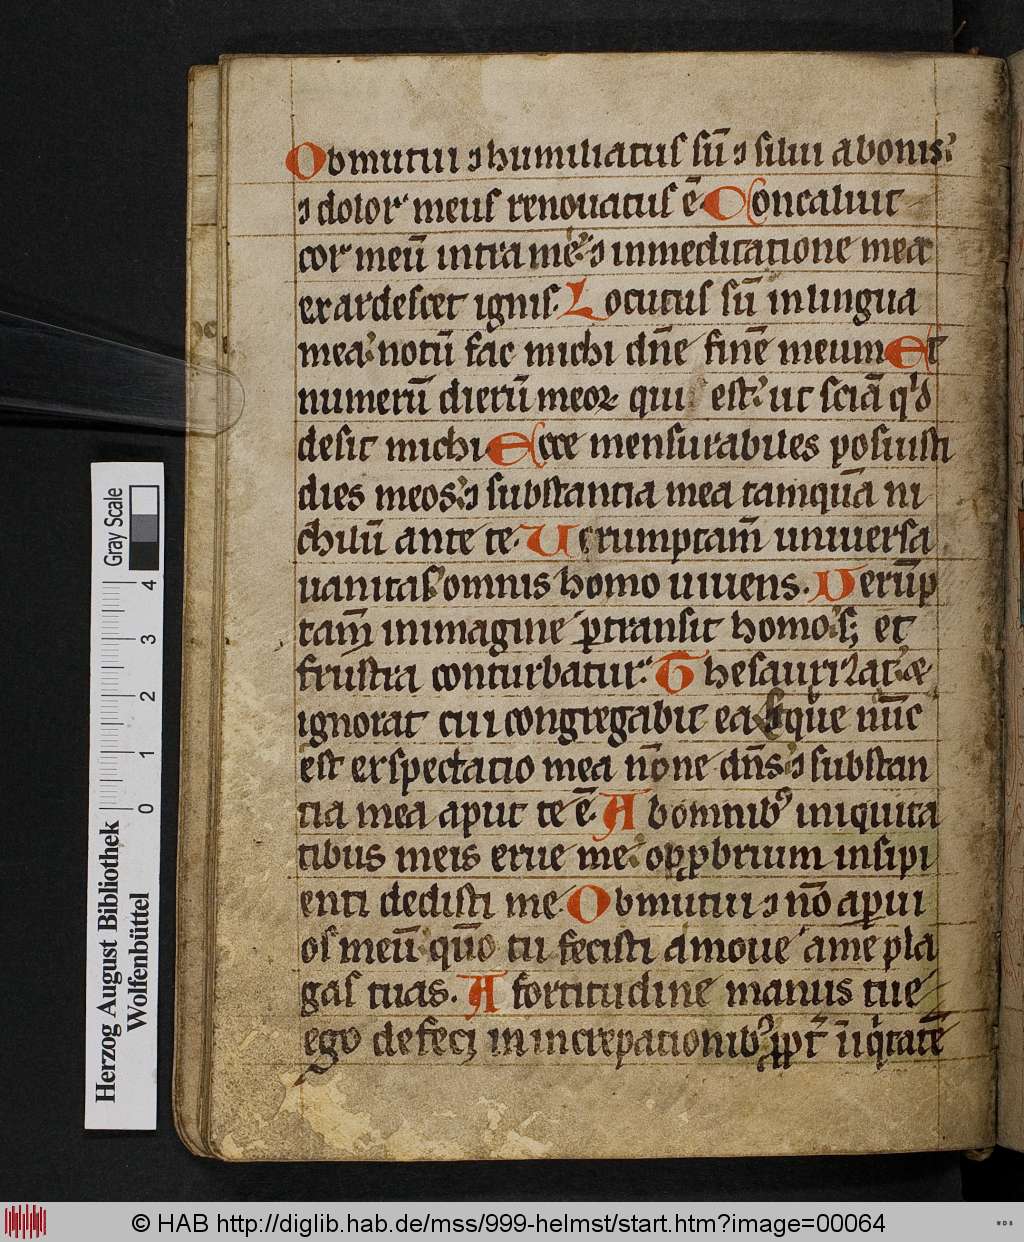 Obmutui ⁊ humiliatus sū ⁊ silui abonis.
⁊ dolor meus renouatus ē. Concaluit
cor meū intra me. ⁊ inmeditatione mea
exardescet ignis. Locutus sū inlingua
mea. notū fac michi dn̄e finē meum Et
numerū dierū meoꝝ qui est. ut sciā qͥd
desit michi Ecce mensurabiles posuisti
dies meos. ⁊ substantia mea tamquā ni
chilū ante te. Uerumptam̄ uniuersa
uanitas omnis homo uiuens. Verūp
tam̄ inimagine ꝑtransit homo. sꝫ et
frustra conturbatur. Thesaurizat. &
ignorat cui congregabit ea que nūc
est exspectatio mea n̄one dn̄s. ⁊ substan
tia mea aput te ē. Abomnibꝰ iniquita
tibus meis erue me. opꝑbrium insipi
enti dedisti me. Obmutui ⁊ nō aperui
os meū quō tu fecisti amoue ame pla
gas tuas. A fortitudine manus tue
ego defeci in increpationibꝰ ꝓpt̄ iniqͥtatē
Herzog August Bibliothek
Wolfenbüttel
0 1 2 3 4
Gray Scale
© HAB http://diglib.hab.de/mss/999-helmst/start.htm?image=00064